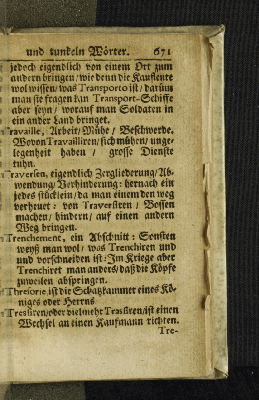 und tunckeln Wörter. 671
jedoch eigendlich von einem Ort zum
andern bringen/ wie denn die Kaufleute
wol wissen/ was Transporto ist/ darüm
man sie fragen kan Transport-Schiffe
aber seyn/ worauf man Soldaten in
ein ander Land bringet.
Travaille, Arbeit/ Mühe/ Beschwerde.
Wovon Travailliren/ sich mühen/ unge-
legenheit haben / grosse Dienste
tuhn.
Traversen, eigendlich Zergliederung/ Ab-
wendung/ Verhinderung: hernach ein
jedes stücklein/ da man einem den weg
verhauet: von Traversiren/ Bossen
machen/ hindern/ auf einen andern
Weg bringen.
Trenchement, ein Abschnitt: Sonsten
weyß man wol/ was Trenchiren und
und vorschneiden ist: Im Kriege aber
Trenchiret man anders/ daß die Köpfe
zuweilen abspringen.
Thresorie, ist die Schatzkammer eines Kö-
niges oder Herrns
Tresiren/ oder vielmehr Trassiren/ ist einen
Wechsel an einen Kaufmann richten.
Tre-